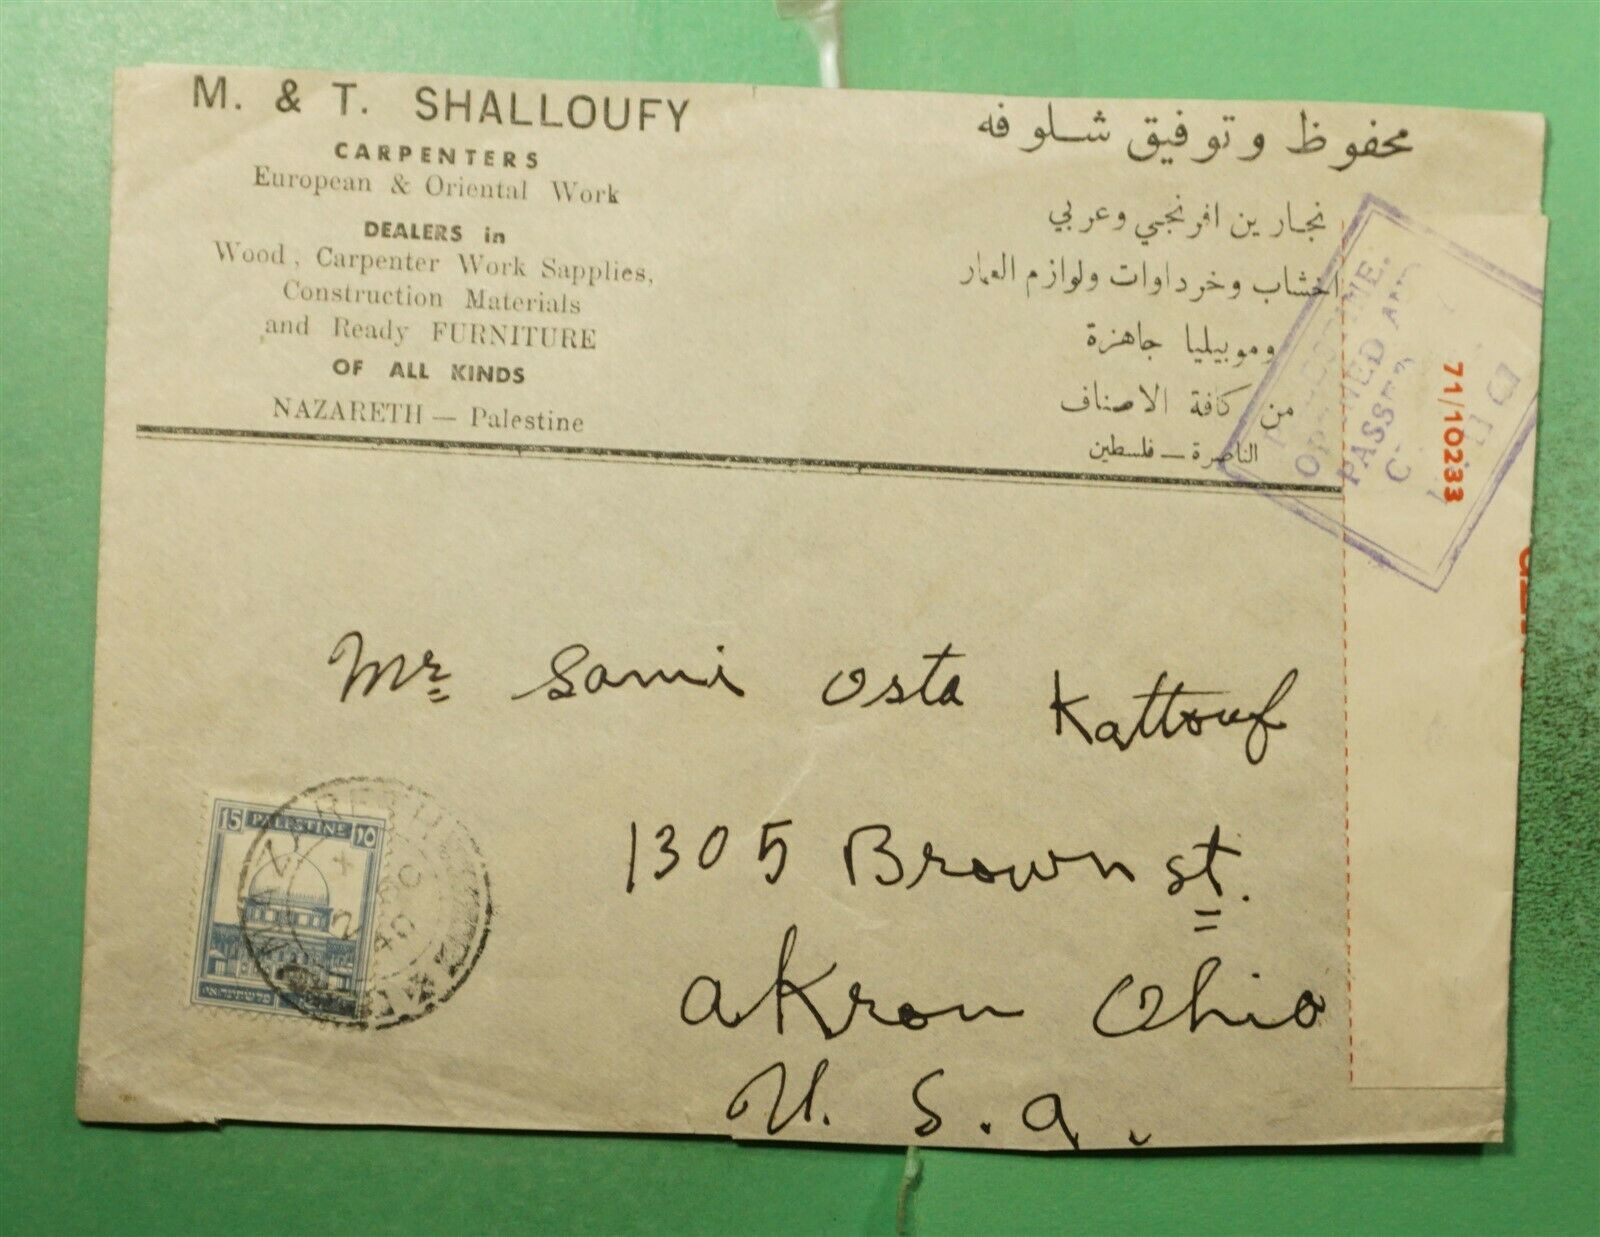 M. & T. SHALLOUFY
CARPENTERS
European & Oriental Work
DEALERS in
Wood, Carpenter Work Sapplies,
Construction Materials
and Ready FURNITURE
OF ALL KINDS
NAZARETH — Palestine
محفوظ وتوفيق شلوفه
نجارين افرنجي وعربي
اخشاب وخرداوات ولوازم العمار
وموبيليا جاهزة
من كافة الاصناف
الناصرة — فلسطين
OPENED AND
PASSED
71/10233
Mr Sami Osta Kattouf
1305 Brown st.
Akron Ohio
U. S. a.
15 PALESTINE ١٥